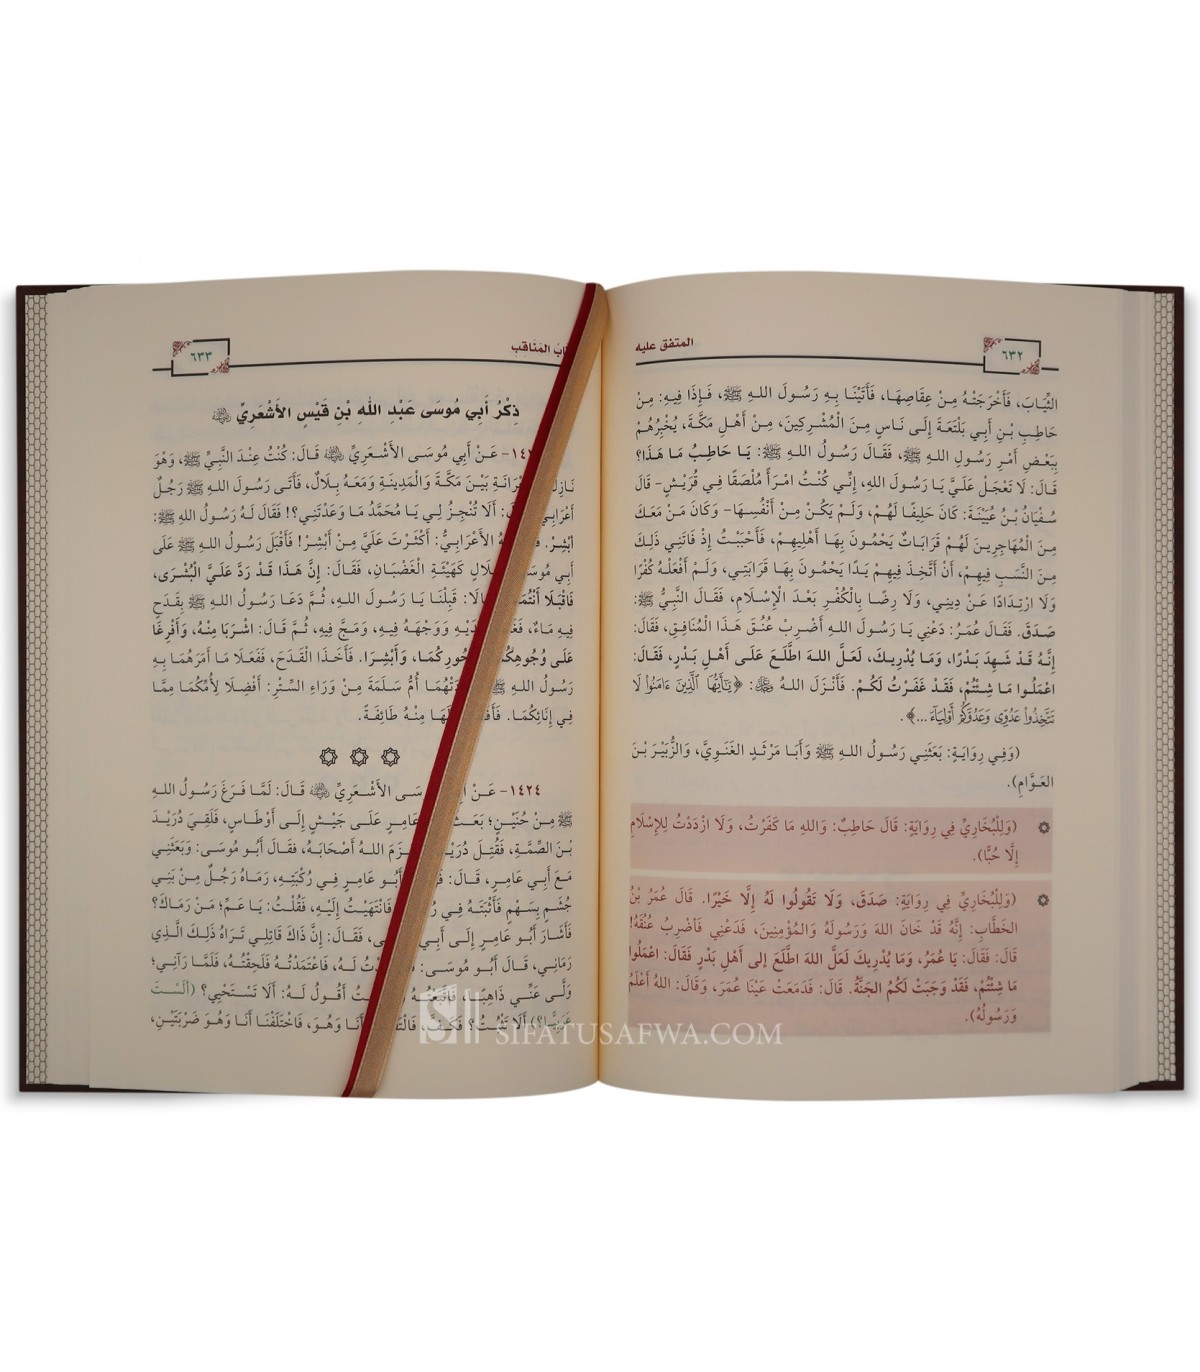 ٦٣٢
المتفق عليه
الثِّيَابَ، فَأَخْرَجَتْهُ مِنْ عِقَاصِهَا، فَأَتَيْنَا بِهِ رَسُولَ اللهِ ﷺ، فَإِذَا فِيهِ: مِنْ
حَاطِبِ بْنِ أَبِي بَلْتَعَةَ إِلَى نَاسٍ مِنَ الْمُشْرِكِينَ، مِنْ أَهْلِ مَكَّةَ، يُخْبِرُهُمْ
بِبَعْضِ أَمْرِ رَسُولِ اللهِ ﷺ، فَقَالَ رَسُولُ اللهِ ﷺ: يَا حَاطِبُ مَا هَذَا؟
قَالَ: لَا تَعْجَلْ عَلَيَّ يَا رَسُولَ اللهِ، إِنِّي كُنْتُ امْرَأً مُلْصَقًا فِي قُرَيْشٍ- قَالَ
سُفْيَانُ بْنُ عُيَيْنَةَ: كَانَ حَلِيفًا لَهُمْ، وَلَمْ يَكُنْ مِنْ أَنْفُسِهَا- وَكَانَ مَنْ مَعَكَ
مِنَ الْمُهَاجِرِينَ لَهُمْ قَرَابَاتٌ يَحْمُونَ بِهَا أَهْلِيهِمْ، فَأَحْبَبْتُ إِذْ فَاتَنِي ذَلِكَ
مِنَ النَّسَبِ فِيهِمْ، أَنْ أَتَّخِذَ فِيهِمْ يَدًا يَحْمُونَ بِهَا قَرَابَتِي، وَلَمْ أَفْعَلْهُ كُفْرًا
وَلَا ارْتِدَادًا عَنْ دِينِي، وَلَا رِضًا بِالْكُفْرِ بَعْدَ الْإِسْلَامِ، فَقَالَ النَّبِيُّ ﷺ:
صَدَقَ. فَقَالَ عُمَرُ: دَعْنِي يَا رَسُولَ اللهِ أَضْرِبْ عُنُقَ هَذَا الْمُنَافِقِ، فَقَالَ:
إِنَّهُ قَدْ شَهِدَ بَدْرًا، وَمَا يُدْرِيكَ، لَعَلَّ اللهَ اطَّلَعَ عَلَى أَهْلِ بَدْرٍ، فَقَالَ:
اعْمَلُوا مَا شِئْتُمْ، فَقَدْ غَفَرْتُ لَكُمْ. فَأَنْزَلَ اللهُ ﷻ: ﴿يَٰٓأَيُّهَا ٱلَّذِينَ ءَامَنُوا۟ لَا
تَتَّخِذُوا۟ عَدُوِّى وَعَدُوَّكُمْ أَوْلِيَآءَ ...﴾.
(وَفِي رِوَايَةٍ: بَعَثَنِي رَسُولُ اللهِ ﷺ وَأَبَا مَرْثَدٍ الْغَنَوِيَّ، وَالزُّبَيْرَ بْنَ
الْعَوَّامِ).
(وَلِلْبُخَارِيِّ فِي رِوَايَةٍ: قَالَ حَاطِبٌ: وَاللهِ مَا كَفَرْتُ، وَلَا ازْدَدْتُ لِلْإِسْلَامِ
إِلَّا حُبًّا).
(وَلِلْبُخَارِيِّ فِي رِوَايَةٍ: صَدَقَ، وَلَا تَقُولُوا لَهُ إِلَّا خَيْرًا. قَالَ عُمَرُ بْنُ
الْخَطَّابِ: إِنَّهُ قَدْ خَانَ اللهَ وَرَسُولَهُ وَالْمُؤْمِنِينَ، فَدَعْنِي فَأَضْرِبَ عُنُقَهُ!
قَالَ: فَقَالَ: يَا عُمَرُ، وَمَا يُدْرِيكَ لَعَلَّ اللهَ اطَّلَعَ إِلَى أَهْلِ بَدْرٍ فَقَالَ: اعْمَلُوا
مَا شِئْتُمْ، فَقَدْ وَجَبَتْ لَكُمُ الْجَنَّةُ. قَالَ: فَدَمَعَتْ عَيْنَا عُمَرَ، وَقَالَ: اللهُ أَعْلَمُ
وَرَسُولُهُ).
المَنَاقِبِ
٦٣٣
ذِكْرُ أَبِي مُوسَى عَبْدِ اللهِ بْنِ قَيْسٍ الأَشْعَرِيِّ ﵁
عَنْ أَبِي مُوسَى الأَشْعَرِيِّ ﵁ قَالَ: كُنْتُ عِنْدَ النَّبِيِّ ﷺ، وَهُوَ
بَيْنَ مَكَّةَ وَالْمَدِينَةِ وَمَعَهُ بِلَالٌ، فَأَتَى رَسُولَ اللهِ ﷺ رَجُلٌ
أَلَا تُنْجِزُ لِي يَا مُحَمَّدُ مَا وَعَدْتَنِي؟! فَقَالَ لَهُ رَسُولُ اللهِ ﷺ:
أَبْشِرْ. الأَعْرَابِيُّ: أَكْثَرْتَ عَلَيَّ مِنْ أَبْشِرْ! فَأَقْبَلَ رَسُولُ اللهِ ﷺ عَلَى
أَبِي كَهَيْئَةِ الْغَضْبَانِ، فَقَالَ: إِنَّ هَذَا قَدْ رَدَّ عَلَيَّ الْبُشْرَى،
فَاقْبَلَا قَبِلْنَا يَا رَسُولَ اللهِ، ثُمَّ دَعَا رَسُولُ اللهِ ﷺ بِقَدَحٍ
فِيهِ مَاءٌ، وَوَجْهَهُ فِيهِ، وَمَجَّ فِيهِ، ثُمَّ قَالَ: اشْرَبَا مِنْهُ، وَأَفْرِغَا
عَلَى وَأَبْشِرَا. فَأَخَذَا الْقَدَحَ، فَفَعَلَا مَا أَمَرَهُمَا بِهِ
رَسُولُ اللهِ أُمُّ سَلَمَةَ مِنْ وَرَاءِ السِّتْرِ: أَفْضِلَا لِأُمِّكُمَا مِمَّا
فِي إِنَائِكُمَا. مِنْهُ طَائِفَةً.
١٤٢٤- عَنْ الأَشْعَرِيِّ ﵁ قَالَ: لَمَّا فَرَغَ رَسُولُ اللهِ
ﷺ مِنْ حُنَيْنٍ؛ عَامِرٍ عَلَى جَيْشٍ إِلَى أَوْطَاسٍ، فَلَقِيَ دُرَيْدَ
بْنَ الصِّمَّةِ، فَقُتِلَ اللهُ أَصْحَابَهُ، فَقَالَ أَبُو مُوسَى: وَبَعَثَنِي
مَعَ أَبِي عَامِرٍ، قَالَ: أَبُو عَامِرٍ فِي رُكْبَتِهِ، رَمَاهُ رَجُلٌ مِنْ بَنِي
جُشَمٍ بِسَهْمٍ فَأَثْبَتَهُ فِي فَانْتَهَيْتُ إِلَيْهِ، فَقُلْتُ: يَا عَمِّ؛ مَنْ رَمَاكَ؟
فَأَشَارَ أَبُو عَامِرٍ إِلَى فَقَالَ: إِنَّ ذَاكَ قَاتِلِي تَرَاهُ ذَلِكَ الَّذِي
رَمَانِي، قَالَ أَبُو مُوسَى: لَهُ، فَاعْتَمَدْتُهُ فَلَحِقْتُهُ، فَلَمَّا رَآنِي؛
وَلَّى عَنِّي ذَاهِبًا، فَاتَّبَعْتُهُ أَقُولُ لَهُ: أَلَا تَسْتَحْيِي؟ (أَلَسْتَ
عَرَبِيًّا؟) أَلَا تَثْبُتُ؟ فَكَفَّ، أَنَا وَهُوَ، فَاخْتَلَفْنَا أَنَا وَهُوَ ضَرْبَتَيْنِ،
SIFATUSAFWA.COM